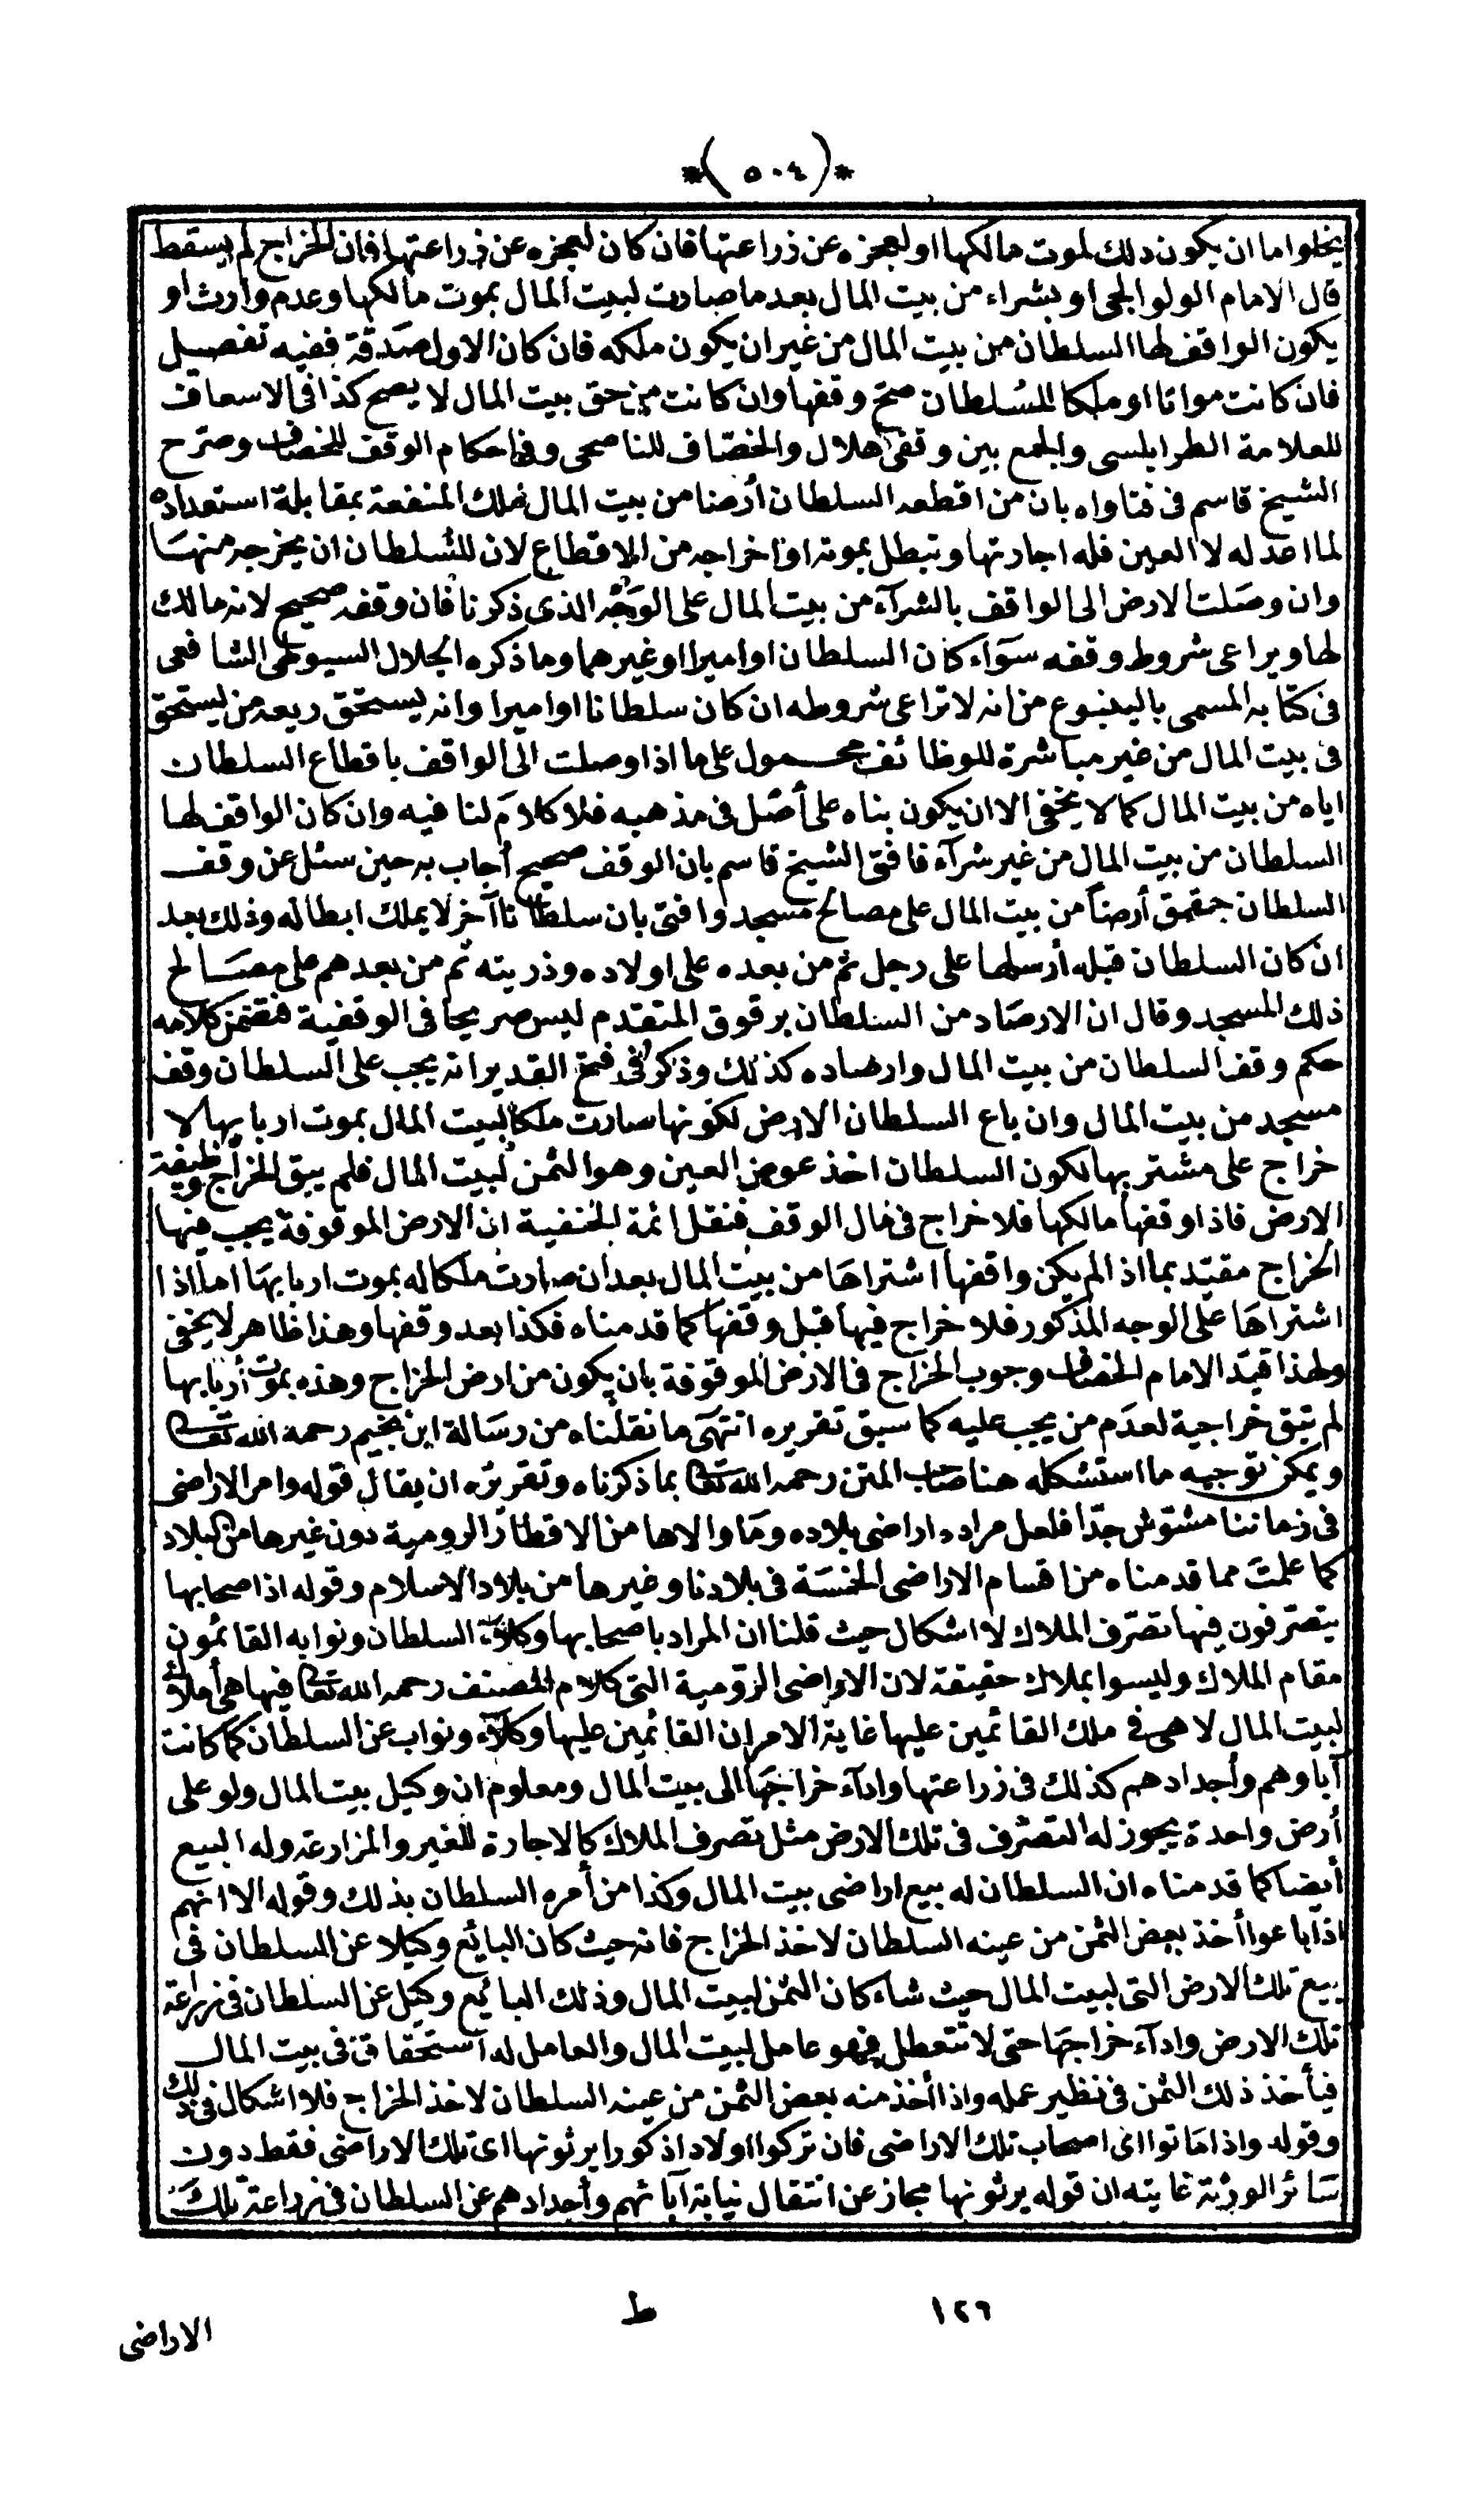 *(٥٠٤)*
يخلوا ما ان يكون ذلك لموت مالكها او لعجزه عن زراعتها فان كان لعجزه عن زراعتها فان الخراج لم يسقط
قال الامام الولوالجى او بشراء من بيت المال بعد ما صارت لبيت المال بموت مالكها وعدم وارث او
يكون الواقف لها السلطان من بيت المال من غير ان يكون ملكه فان كان الاول صدقة ففيه تفصيل
فان كانت مواتا او ملكا للسلطان صح وقفها وان كانت من حق بيت المال لا يصح كذا فى الاسعاف
للعلامة الطرابلسى والجمع بين وقفى هلال والخصّاف للناصحى وفى احكام الوقف للخصاف وصرّح
الشيخ قاسم فى فتاواه بان من اقطعه السلطان أرضا من بيت المال ملك المنفعة بمقابلة استعداده
لما اعد له لا العين فله اجارتها وتبطل بموته او اخراجه من الاقطاع لان للسلطان ان يخرجه منها
وان وصلت الارض الى الواقف بالشرآء من بيت المال على الوجه الذى ذكرنا فان وقفه صحيح لانه مالك
لها ويراعى شروط وقفه سوآء كان السلطان او اميرا او غيرهما وما ذكره الجلال السيوطى الشافعى
فى كتابه المسمى بالينبوع من انه لا تراعى شروطه ان كان سلطانا او اميرا وانه يستحق ريعه من يستحق
فى بيت المال من غير مباشرة للوظائف محمول على ما اذا وصلت الى الواقف باقطاع السلطان
اياه من بيت المال كما لا يخفى الا ان يكون بناه على أصل فى مذهبه فلا كلام لنا فيه وان كان الواقف لها
السلطان من بيت المال من غير شرآء فافتى الشيخ قاسم بان الوقف صحيح أجاب به حين سئل عن وقف
السلطان جقمق أرضاً من بيت المال على مصالح مسجد وافتى بان سلطانا آخر لا يملك ابطاله وذلك بعد
ان كان السلطان قبله أرسلها على رجل ثم من بعده على اولاده وذريته ثم من بعدهم على مصالح
ذلك المسجد وقال ان الارصاد من السلطان برقوق المتقدم ليس صريحا فى الوقفية فتضمن كلامه
حكم وقف السلطان من بيت المال وارصاده كذلك وذكر فى فتح القدير انه يجب على السلطان وقف
مسجد من بيت المال وان باع السلطان الارض لكونها صارت ملكا لبيت المال بموت اربابها لا
خراج على مشتريها لكون السلطان اخذ عوض العين وهو الثمن لبيت المال فلم يبق الخراج وظيفة
الارض فاذا وقفها مالكها فلا خراج فى مال الوقف فنقل ائمة الحنفية ان الارض الموقوفة يجب فيها
الخراج مقيّد بما اذا لم يكن واقفها اشتراها من بيت المال بعد ان صارت ملكا له بموت اربابها اما اذا
اشتراها على الوجه المذكور فلا خراج فيها قبل وقفها كما قدمناه فكذا بعد وقفها وهذا ظاهر لا يخفى
ولهذا قيّد الامام الخصاف وجوب الخراج فى الارض الموقوفة بان يكون من ارض الخراج وهذه بموت أربابها
لم تبق خراجية لعدم من يجب عليه كما سبق تقريره انتهى ما نقلناه من رسالة ابن نجيم رحمه الله تعالى
ويمكن توجيه ما استشكله هنا صاحب المتن رحمه الله تعالى بما ذكرناه وتقريره ان يقال قوله وامر الاراضى
فى زماننا مشوّش جدّا فلعل مراده اراضى بلاده وما والاها من الاقطار الرومية دون غيرها من البلاد
كما علمت مما قدمناه من اقسام الاراضى الخمسة فى بلادنا وغيرها من بلاد الاسلام وقوله اذ اصحابها
يتصرّفون فيها تصرّف الملاك لا اشكال حيث قلنا ان المراد باصحابها وكلآء السلطان ونوابه القائمون
مقام الملاك وليسوا بملاك حقيقة لان الاراضى الرومية التى كلام المصنف رحمه الله تعالى فيها هى أملاك
لبيت المال لا هى فى ملك القائمين عليها غاية الامر ان القائمين عليها وكلآء ونواب عن السلطان كما كانت
آباوهم وأجدادهم كذلك فى زراعتها وادآء خراجها الى بيت المال ومعلوم ان وكيل بيت المال ولو على
أرض واحدة يجوز له التصرّف فى تلك الارض مثل تصرف الملاك كالاجارة للغير والمزارعة وله البيع
أيضا كما قدمناه ان السلطان له بيع اراضى بيت المال وكذا من أمره السلطان بذلك وقوله الا انهم
اذا باعوا أخذ بعض الثمن من عينه السلطان لاخذ الخراج فانه حيث كان البائع وكيلا عن السلطان فى
بيع تلك الارض التى لبيت المال حيث شاء كان الثمن لبيت المال وذلك البائع وكيل عن السلطان فى زراعة
تلك الارض وادآء خراجها حتى لا تتعطل فهو عامل لبيت المال والعامل له استحقاق فى بيت المال
فيأخذ ذلك الثمن فى نظير عمله واذا أخذ منه بعض الثمن من عينه السلطان لاخذ الخراج فلا اشكال فى ذلك
وقوله واذا ماتوا اى اصحاب تلك الاراضى فان تركوا اولادا ذكورا يرثونها اى تلك الاراضى فقط دون
سائر الورثة غايته ان قوله يرثونها مجاز عن انتقال نيابة آبائهم وأجدادهم عن السلطان فى زراعة تلك
١٢٦ ط الاراضى